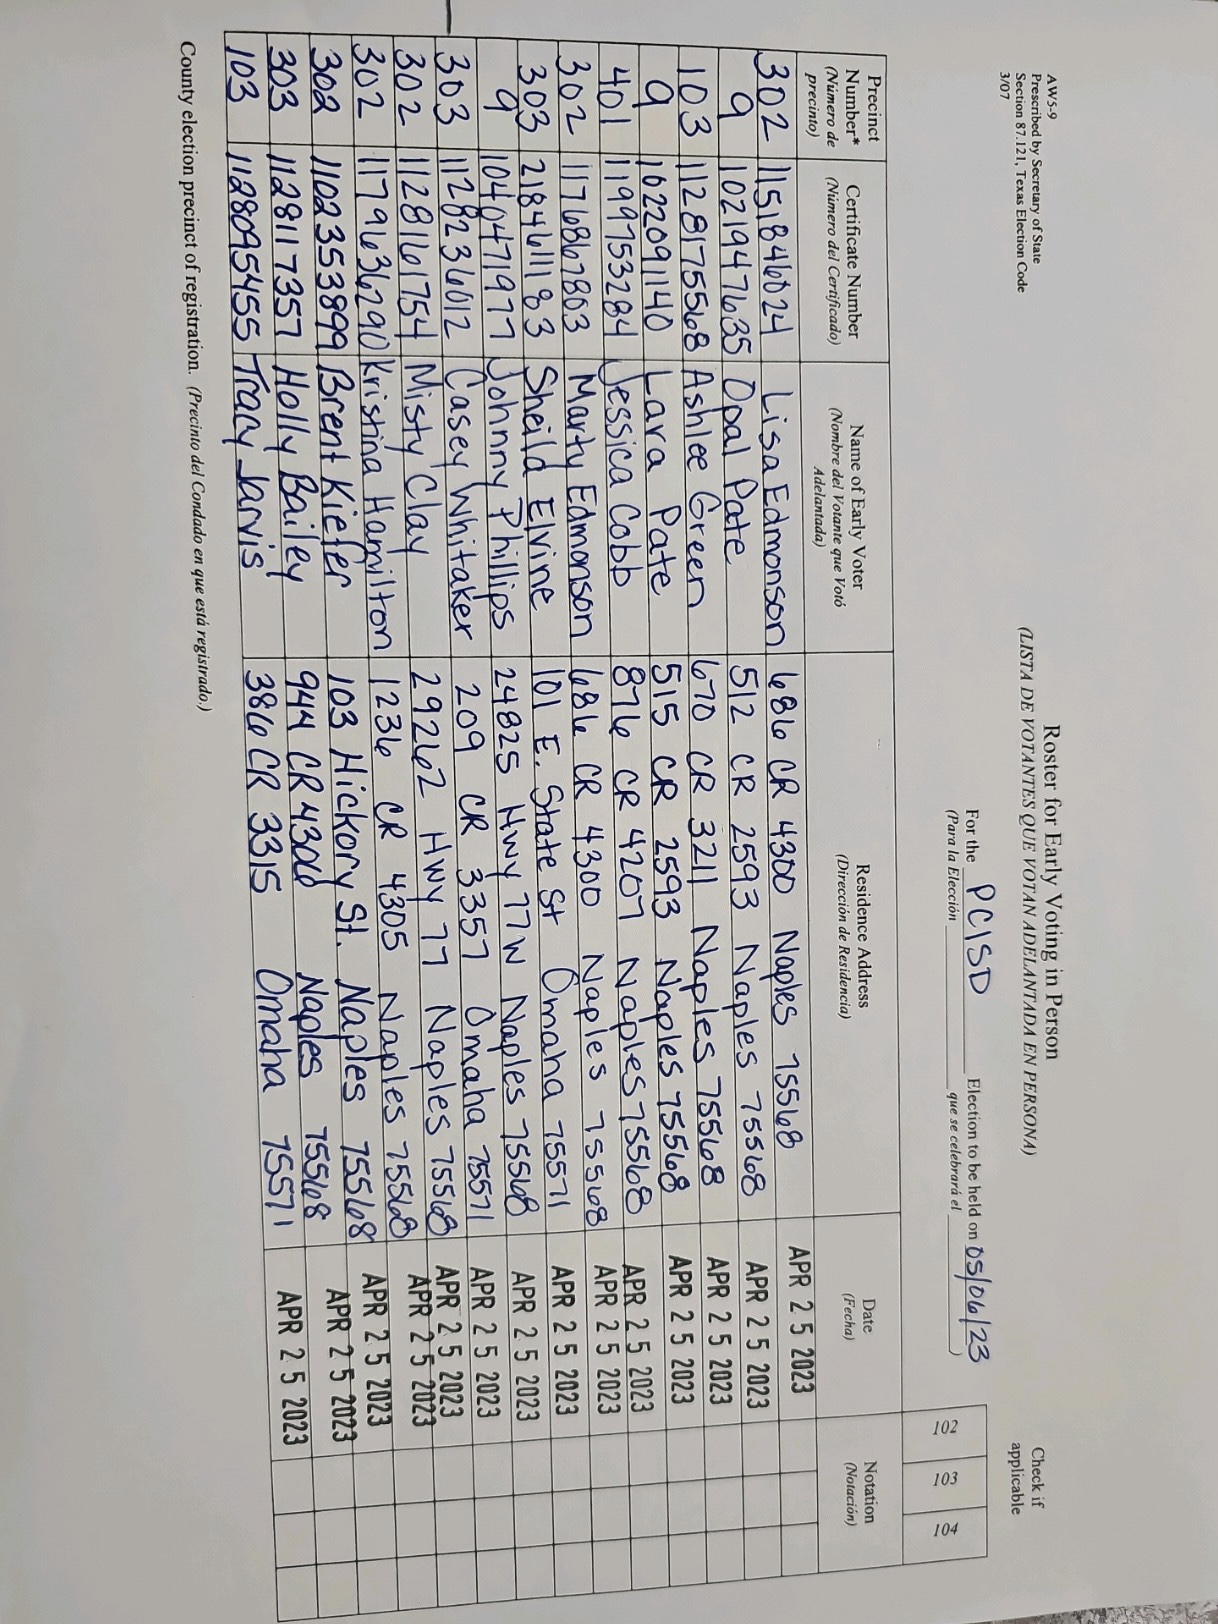 AW5-9
Prescribed by Secretary of State
Section 87.121, Texas Election Code
3/07
Roster for Early Voting in Person
(LISTA DE VOTANTES QUE VOTAN ADELANTADA EN PERSONA)
For the PCISD Election to be held on 05/06/23
(Para la Elección que se celebrará el )
Check if applicable
Precinct Number* (Número de precinto) Certificate Number (Número del Certificado) Name of Early Voter (Nombre del Votante que Votó Adelantada) Residence Address (Dirección de Residencia) Date (Fecha) Notation (Notación) 102 103 104
302 1151846024 Lisa Edmonson 686 CR 4300 Naples 75568 APR 25 2023
9 1021947635 Opal Pate 512 CR 2593 Naples 75568 APR 25 2023
103 1128175568 Ashlee Green 670 CR 3211 Naples 75568 APR 25 2023
9 1622091140 Lara Pate 515 CR 2593 Naples 75568 APR 25 2023
401 1199753284 Jessica Cobb 876 CR 4207 Naples 75568 APR 25 2023
302 1176867803 Marty Edmonson 686 CR 4300 Naples 75568 APR 25 2023
303 2184611183 Sheild Elvine 101 E. State St Omaha 75571 APR 25 2023
9 1040471977 Johnny Phillips 24825 Hwy 77W Naples 75568 APR 25 2023
303 1128236012 Casey Whitaker 209 CR 3357 Omaha 75571 APR 25 2023
302 1128161754 Misty Clay 29262 Hwy 77 Naples 75568 APR 25 2023
302 1179636290 Kristina Hamilton 1236 CR 4305 Naples 75568 APR 25 2023
302 1102353899 Brent Kiefer 103 Hickory St. Naples 75568 APR 25 2023
303 1128117357 Holly Bailey 944 CR 4306 Naples 75568 APR 25 2023
103 1128095455 Tracy Jarvis 386 CR 3315 Omaha 75571 APR 25 2023
County election precinct of registration. (Precinto del Condado en que está registrado.)